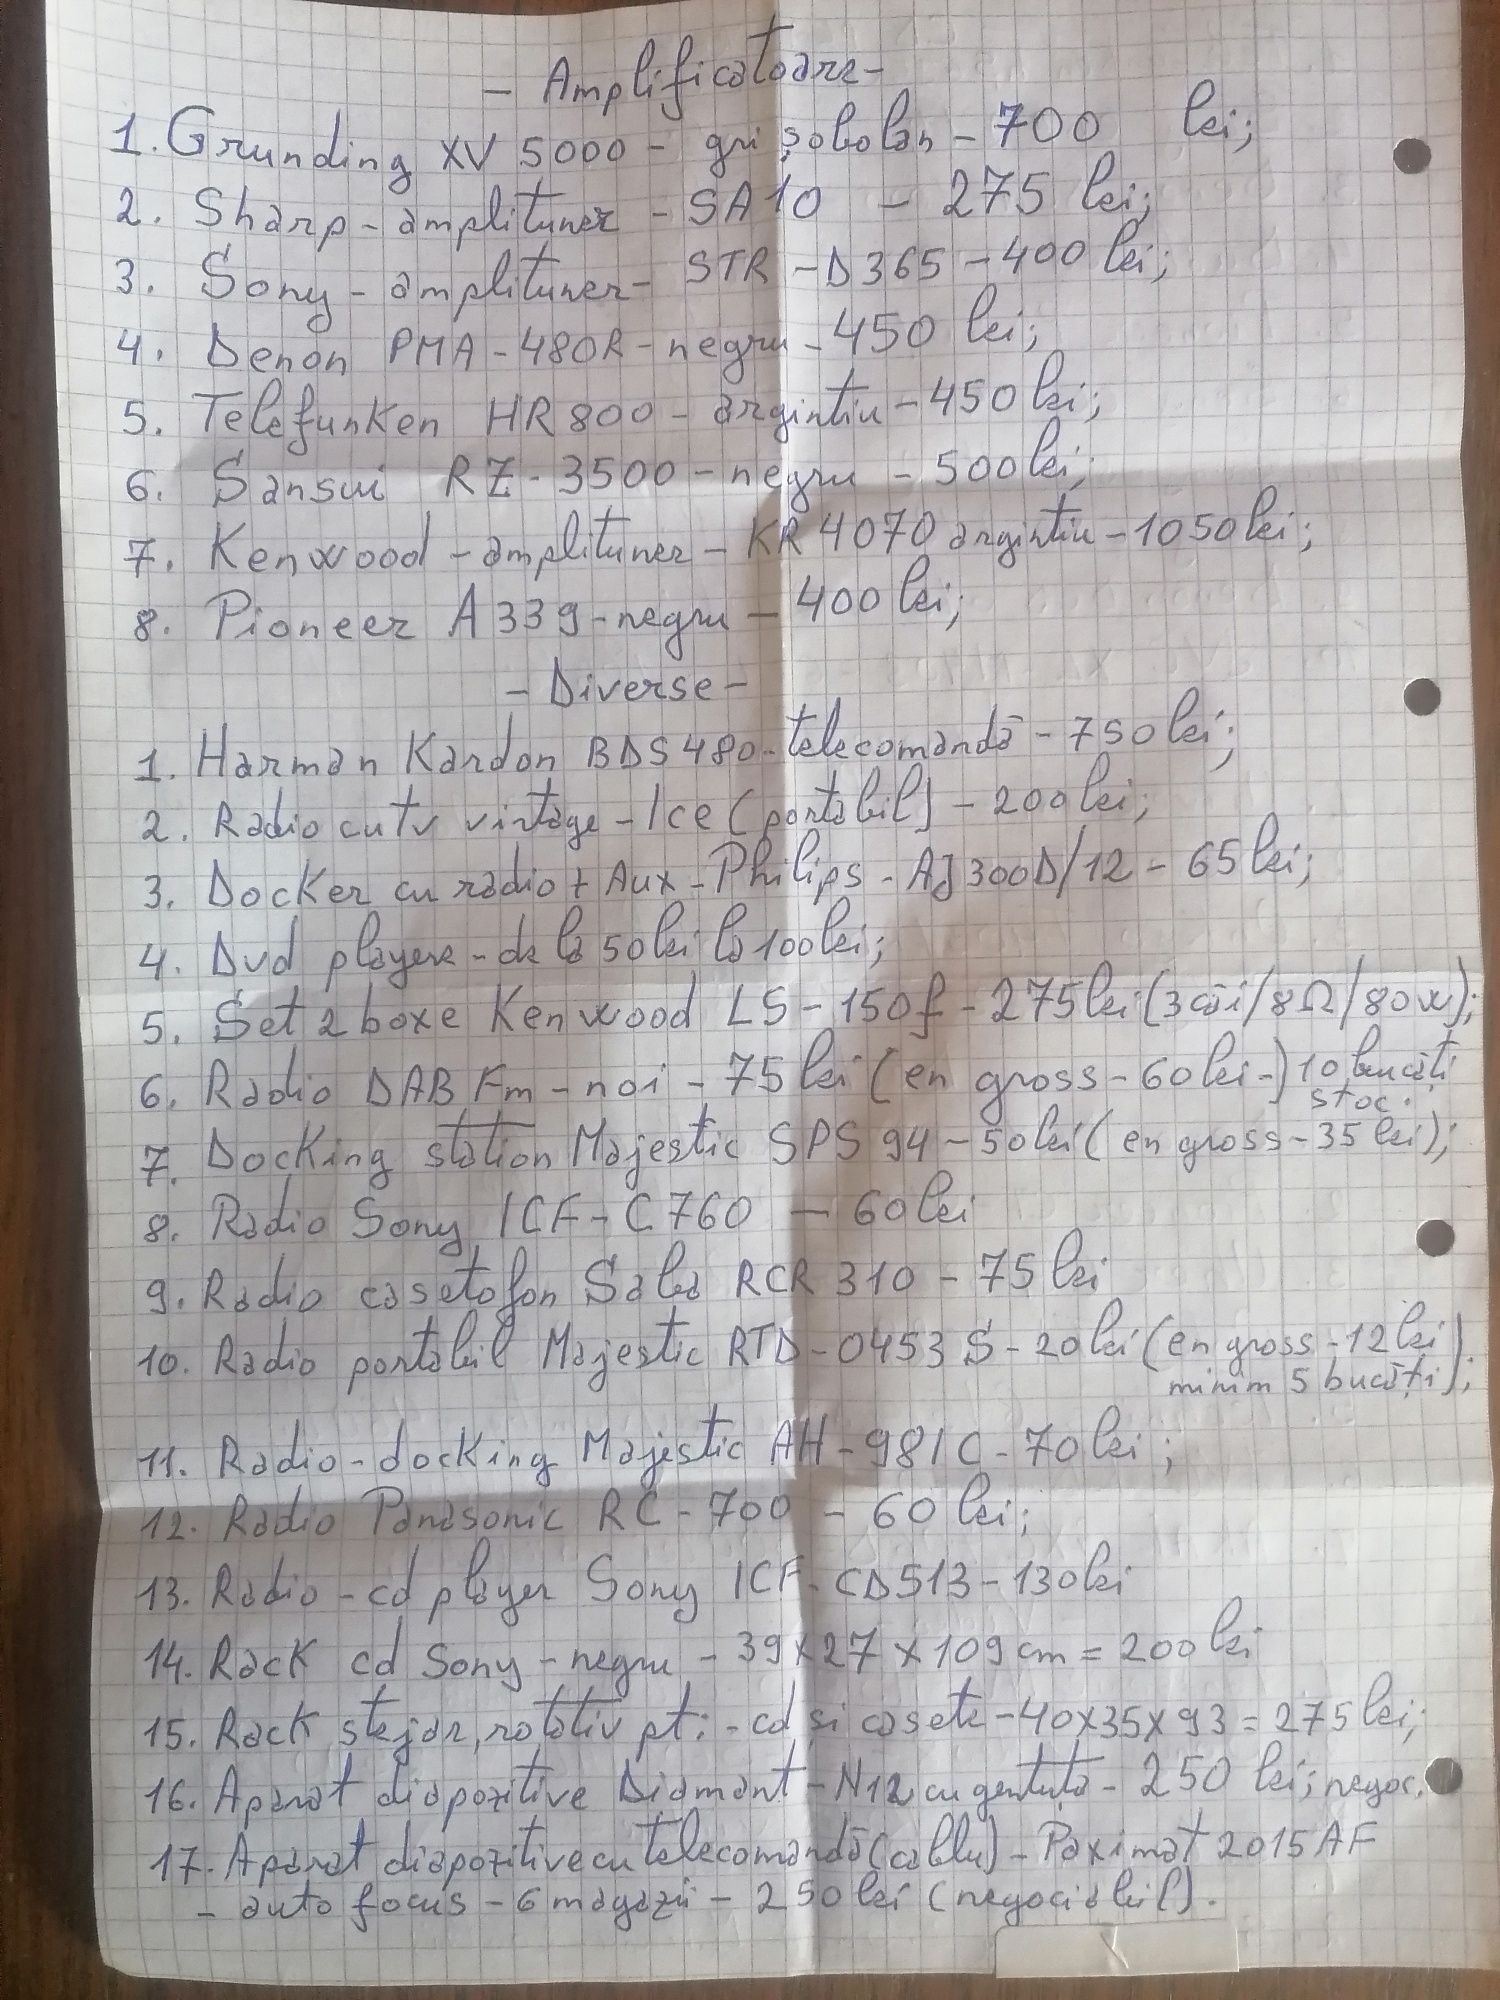 - Amplificatoare -
1. Grunding XV 5000 - gri șobolan - 700 lei;
2. Sharp - amplituner - SA10 - 275 lei;
3. Sony - amplituner - STR - D365 - 400 lei;
4. Denon PMA - 480R - negru - 450 lei;
5. Telefunken HR 800 - argintiu - 450 lei;
6. Sansui RZ - 3500 - negru - 500 lei;
7. Kenwood - amplituner - KR 4070 argintiu - 1050 lei;
8. Pioneer A 339 - negru - 400 lei;
- Diverse -
1. Harman Kardon BDS 480 - telecomandă - 750 lei;
2. Radio cu tv vintage - Ice (portabil) - 200 lei;
3. Docker cu radio + Aux - Philips - AJ 300D/12 - 65 lei;
4. Dvd playere - de la 50 lei la 100 lei;
5. Set 2 boxe Kenwood LS - 150f - 275 lei (3 căi/8Ω/80w);
6. Radio DAB Fm - noi - 75 lei (en gross - 60 lei -) 10 bucăți
stoc.
7. Docking station Majestic SPS 94 - 50 lei (en gross - 35 lei);
8. Radio Sony ICF - C760 - 60 lei
9. Radio casetofon Saba RCR 310 - 75 lei
10. Radio portabil Majestic RTD - 0453 S - 20 lei (en gross - 12 lei
minim 5 bucăți);
11. Radio - docking Majestic AH - 981C - 70 lei;
12. Radio Panasonic RC - 700 - 60 lei;
13. Radio - cd player Sony ICF - CD513 - 130 lei
14. Rack cd Sony - negru - 39 x 27 x 109 cm = 200 lei
15. Rack stejar, rotativ pt: - cd și casete - 40x35x93 = 275 lei;
16. Aparat diapozitive Diamant - N12 cu gentuta - 250 lei; negoc.
17. Aparat diapozitive cu telecomandă (cablu) - Paximat 2015 AF
- auto focus - 6 magazii - 250 lei (negociabil).